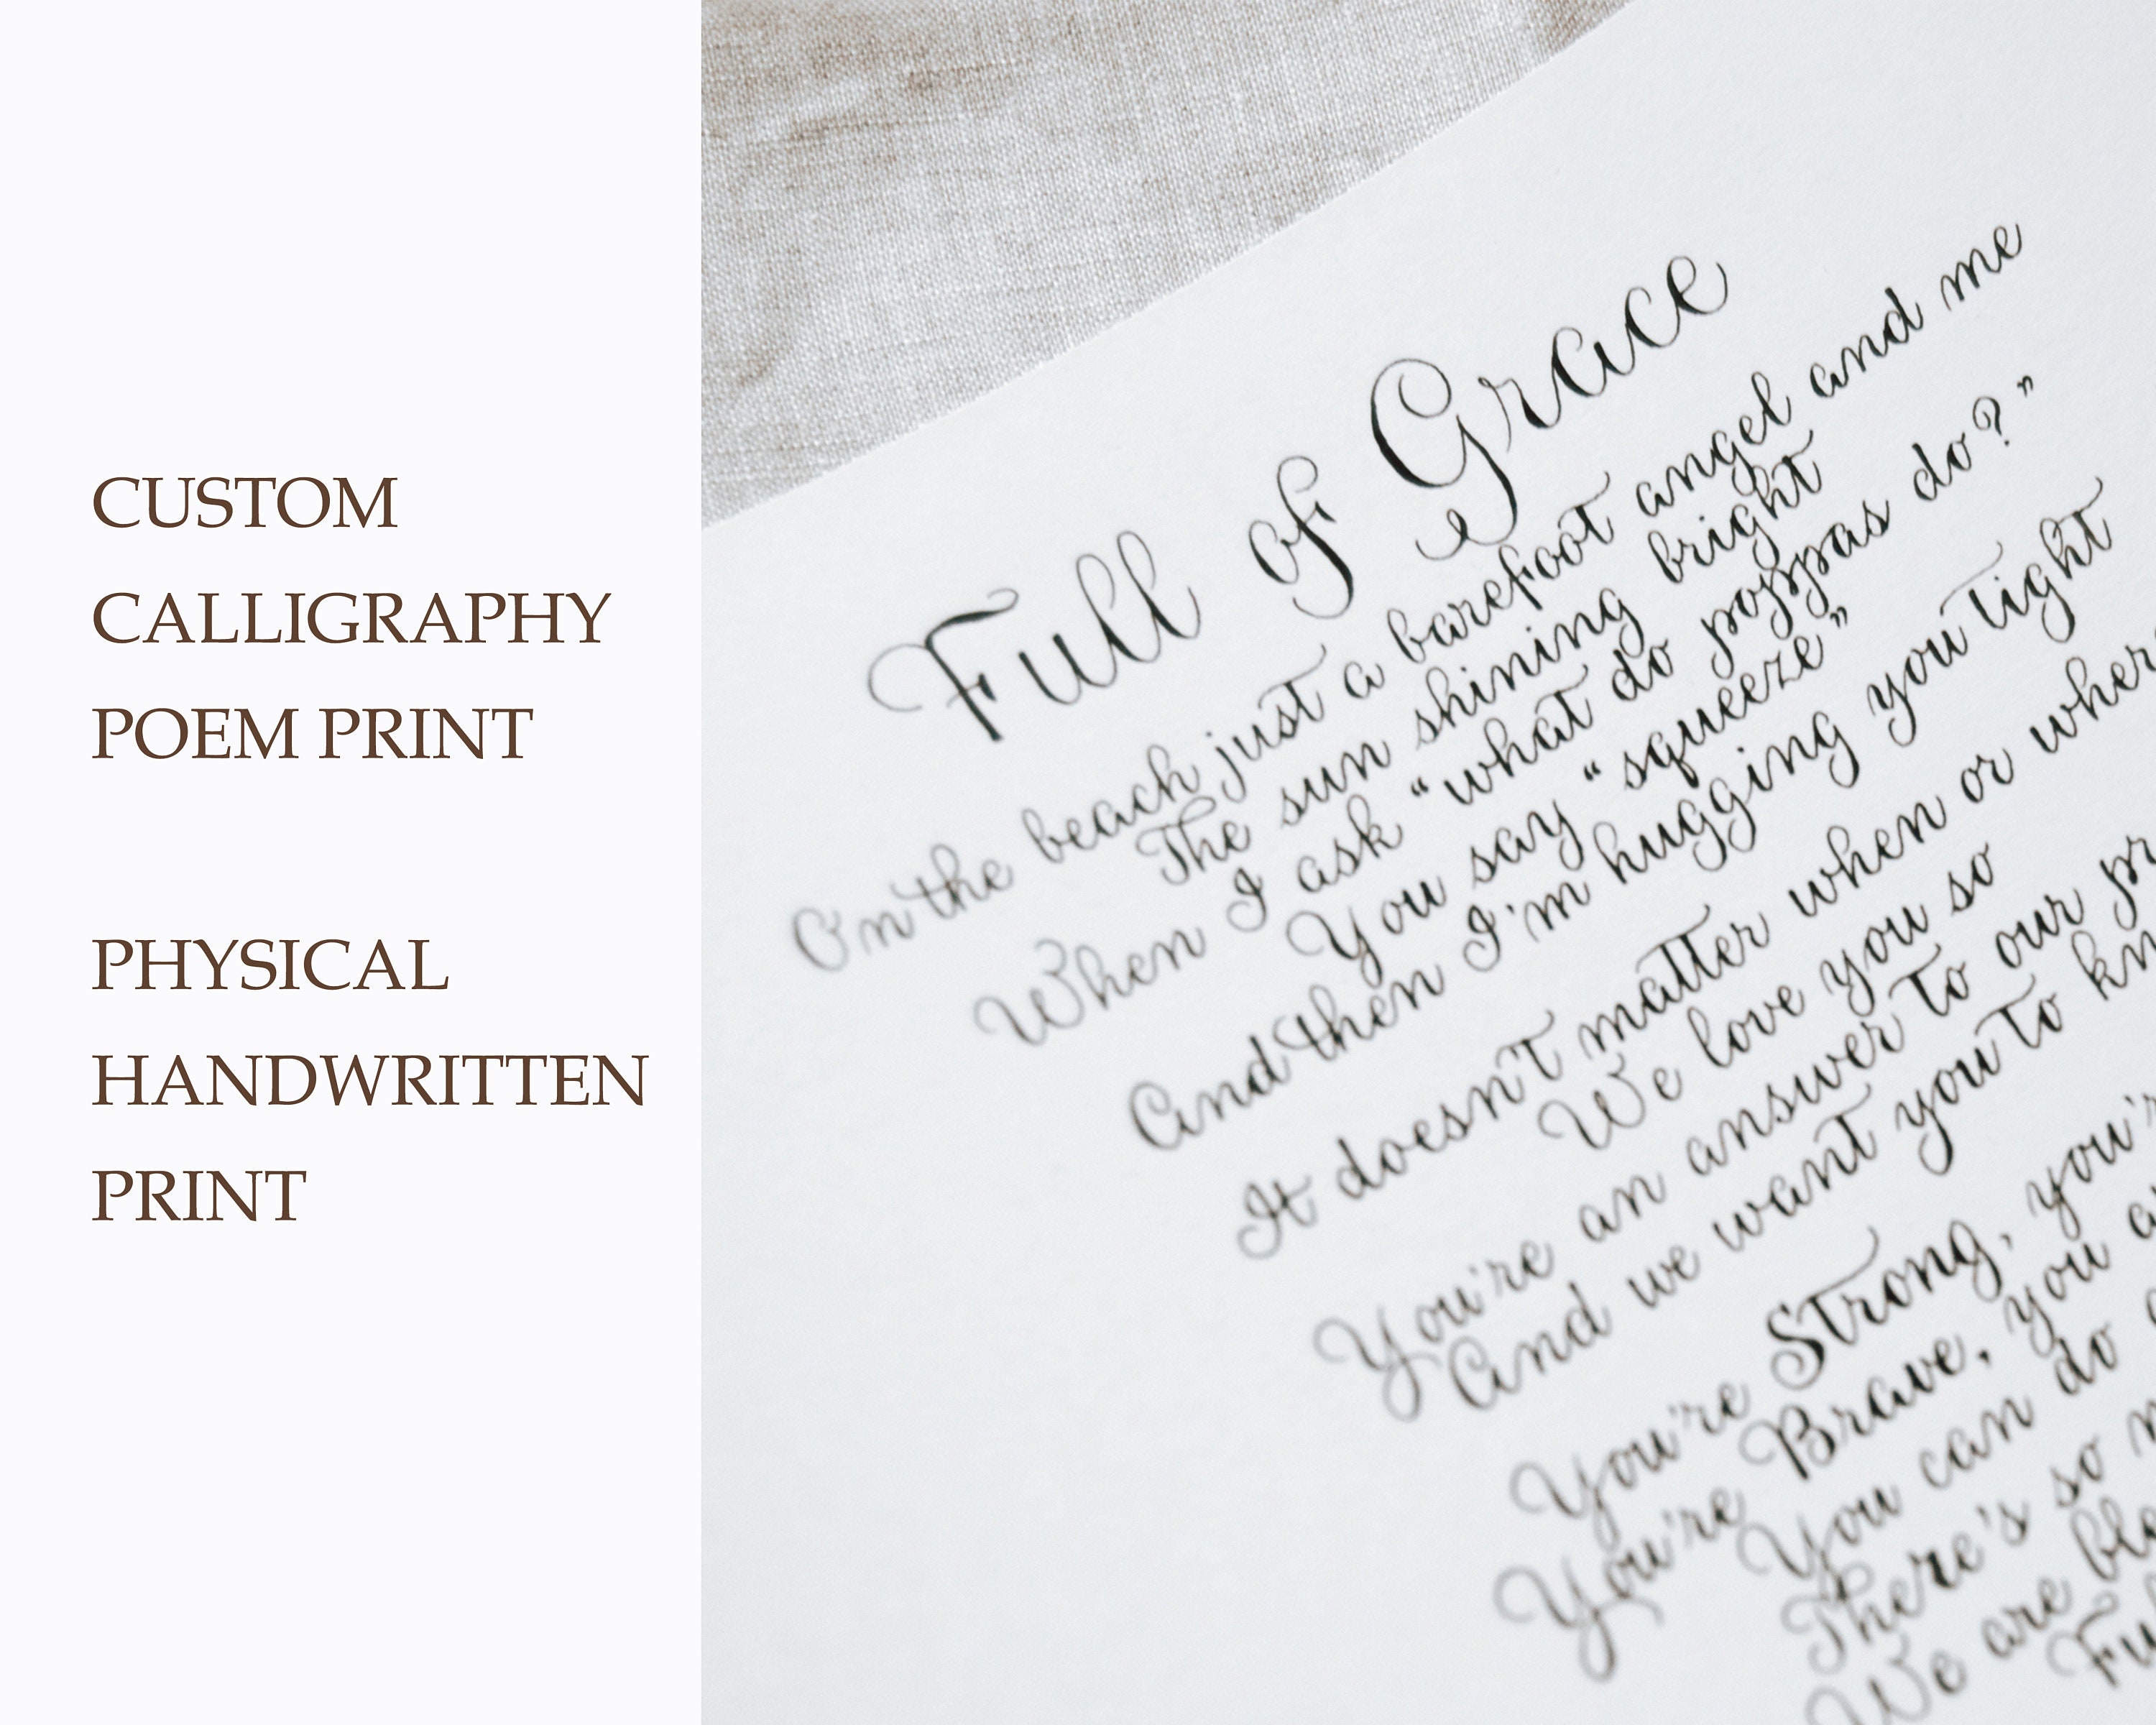 CUSTOM
CALLIGRAPHY
POEM PRINT
PHYSICAL
HANDWRITTEN
PRINT
Full of Grace
On the beach just a barefoot angel and me
The sun shining bright
When I ask “what do poppas do?”
You say “squeeze”
And then I'm hugging you tight
It doesn't matter when or
We love you so
You're an answer to our
And we want you to
You're Strong,
You're Brave, you
You can do
There's so
We are